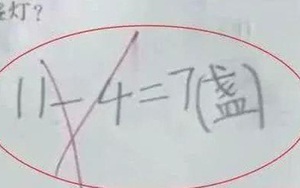 灯?
11-4=7(盏)